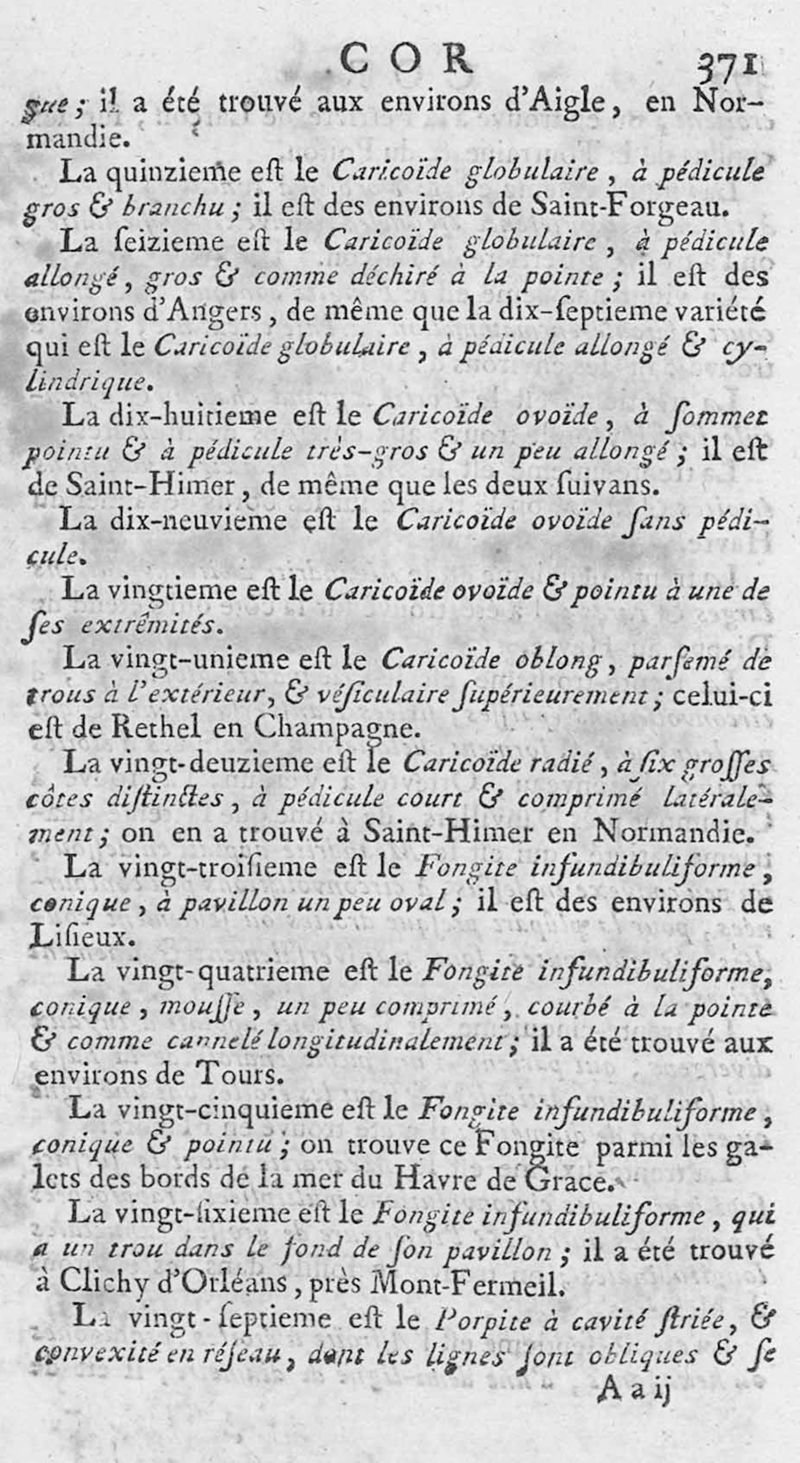 COR 371
gue ; il a été trouvé aux environs d'Aigle, en Nor-
mandie.
La quinzieme eſt le Caricoïde globulaire , à pédicule
gros & branchu ; il eſt des environs de Saint-Forgeau.
La ſeizieme eſt le Caricoïde globulaire , à pédicule
allongé , gros & comme déchiré à la pointe ; il eſt des
environs d'Angers , de même que la dix-ſeptieme variété
qui eſt le Caricoïde globulaire , à pédicule allongé & cy-
lindrique.
La dix-huitieme eſt le Caricoïde ovoïde , à ſommet
pointu & à pédicule très-gros & un peu allongé ; il eſt
de Saint-Himer , de même que les deux ſuivans.
La dix-neuvieme eſt le Caricoïde ovoïde ſans pédi-
cule.
La vingtieme eſt le Caricoïde ovoïde & pointu à une de
ſes extrêmités.
La vingt-unieme eſt le Caricoïde oblong , parſemé de
trous à l'extérieur, & véſiculaire ſupérieurement ; celui-ci
eſt de Rethel en Champagne.
La vingt-deuzieme eſt le Caricoïde radié , à ſix groſſes
côtes diſtinctes , à pédicule court & comprimé latérale-
ment ; on en a trouvé à Saint-Himer en Normandie.
La vingt-troiſieme eſt le Fongite infundibuliforme ,
conique , à pavillon un peu oval ; il eſt des environs de
Liſieux.
La vingt-quatrieme eſt le Fongite infundibuliforme,
conique , mouſſe , un peu comprimé , courbé à la pointe
& comme cannelé longitudinalement ; il a été trouvé aux
environs de Tours.
La vingt-cinquieme eſt le Fongite infundibuliforme ,
conique & pointu ; on trouve ce Fongite parmi les ga-
lets des bords de la mer du Havre de Grace.
La vingt-ſixieme eſt le Fongite infundibuliforme , qui
a un trou dans le fond de ſon pavillon ; il a été trouvé
à Clichy d'Orléans , près Mont-Fermeil.
La vingt-ſeptieme eſt le Porpite à cavité ſtriée, &
convexité en réſeau , dont les lignes ſont obliques & ſe
A a ij